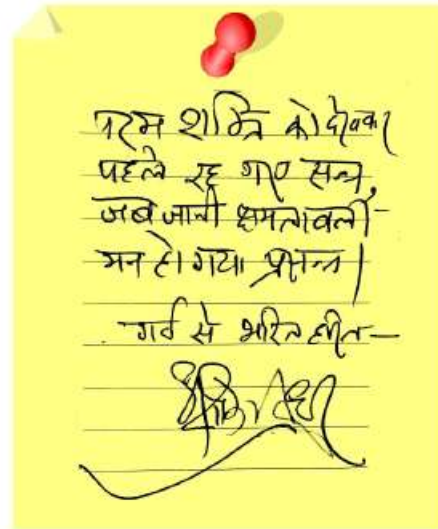 परम शक्ति को देखकर
पहले रह गए सन्न,
जब जानी क्षमतावली-
मन हो गया प्रसन्न।
गर्व से भरित हरित—